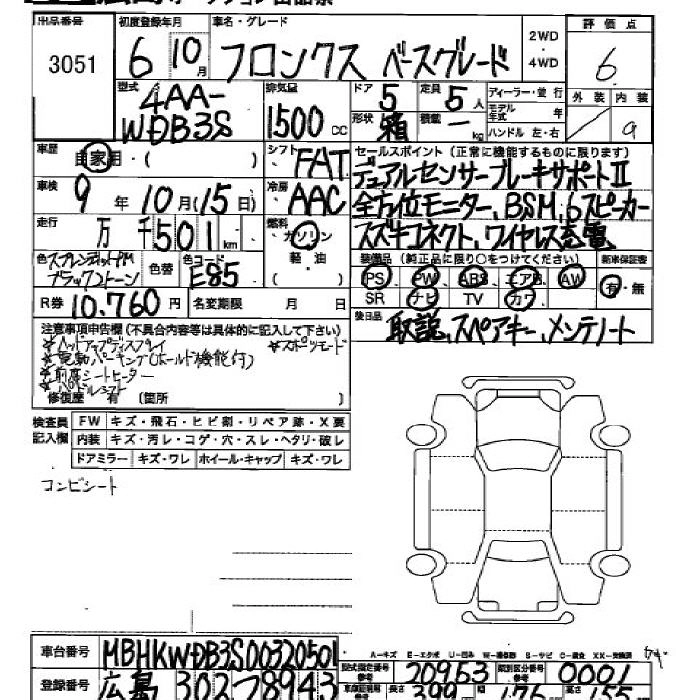 出品番号 初度登録年月 車名・グレード 2WD・4WD 評価点
3051 6 10月 フロンクス ベースグレード 6
型式 4AA-WDB3S 排気量 1500cc ドア 5 定員 5人 ディーラー・並行 外装 内装
形状 箱 積載 ー kg モデル年式 年 ハンドル 左・右 a
車歴 自家用・( ) シフト FAT セールスポイント (正常に機能するものに限ります)
デュアルセンサーブレーキサポートII
車検 9年10月(15日) 冷房 AAC 全方位モニター、BSM、6スピーカー
走行 万千501km 燃料 ガソリン・軽・油 スズキコネクト、ワイヤレス充電
色 ブラック2トーン 色替 色コード E85 装備品 (純正品に限り○をつけてください) 新車保証書
PS PW ABS エアB AW 有・無
SR ナビ TV カワ
R券 10,760円 名変期限 月 日
後日品 取説、スペアキー、メンテノート
注意事項申告欄(不具合内容等は具体的に記入して下さい)
*ヘッドアップディスプレイ *スポーツモード
*電動パーキング(ホールド機能付)
*前席シートヒーター
*パドルシフト
修復歴 有 〔箇所 〕
検査員記入欄 FW キズ・飛石・ヒビ割・リペア跡・X要
内装 キズ・汚レ・コゲ・穴・スレ・ヘタリ・破レ
ドアミラー キズ・ワレ ホイール・キャップ キズ・ワレ
コンビシート
車台番号 MBHKWDB3S00320501
A-キズ E-エクボ U-凹み W-補修跡 S-サビ C-腐食 XX-交換済
型式指定番号参考 20963 類別区分番号参考 0001
登録番号 広島 302 78943
長さ 399